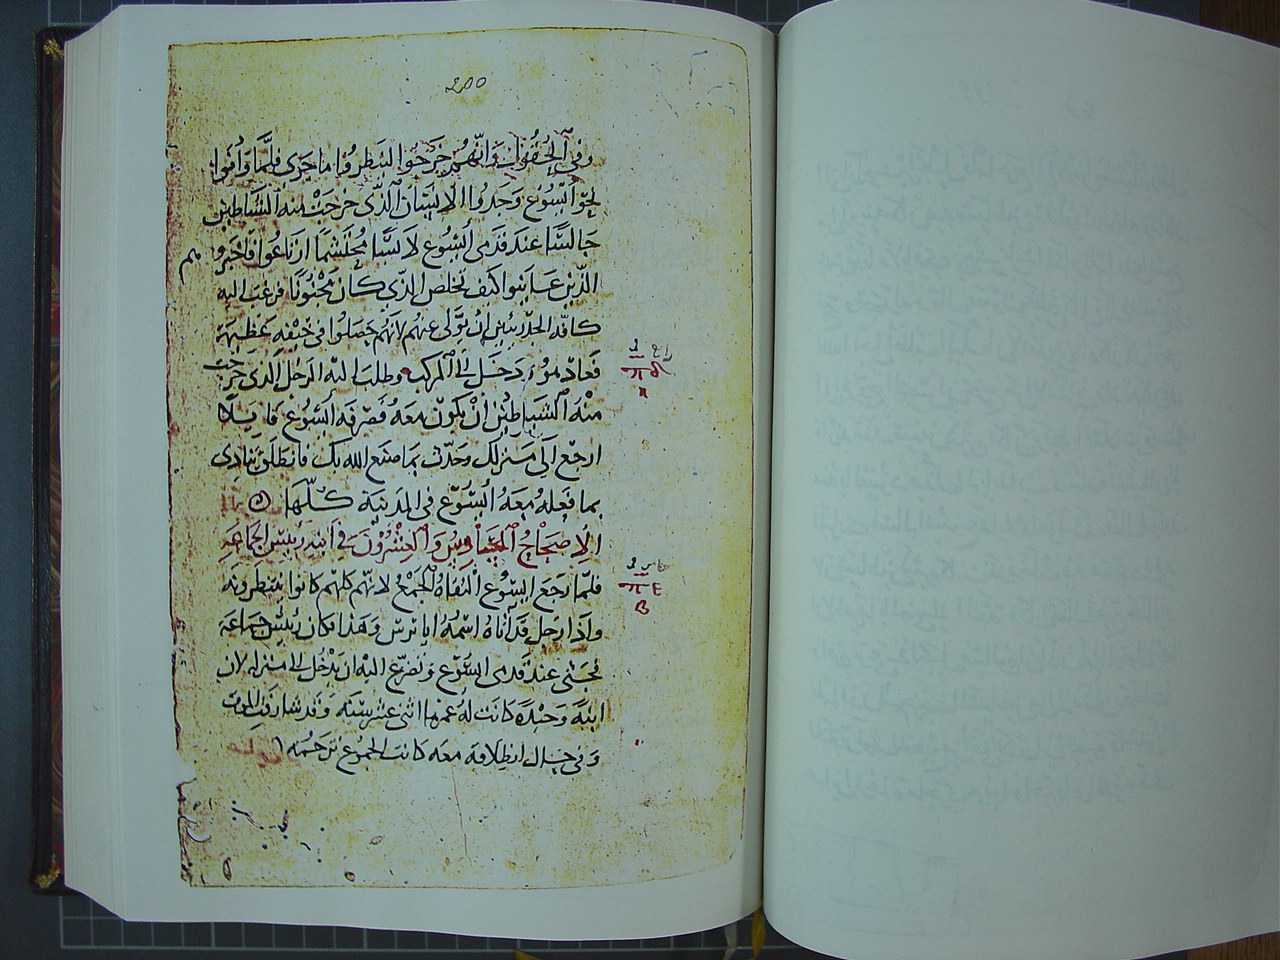 200
وفي الحقول وانهم خرجوا لينظروا ما جرى فلما وافوا
نحو ايسوع وجدوا الانسان الذي خرجت منه الشياطين
جالسًا عند قدمي ايسوع لابسًا محتشمًا ارتاعوا فاخبروهم
الذين عاينوا كيف تخلص الذي كان مجنونًا فرغب اليه
كافة الجدريين ان يتولى عنهم لانهم حصلوا في خيفه عظيمة
فعاد هو ودخل الى المركب وطلب اليه الرجل الذي خرجت
منه الشياطين ان يكون معه فصرفه ايسوع قايلًا
ارجع الى منزلك وحدث بما صنع الله بك فانطلق ينادى
بما فعله معه ايسوع في المدينة كلها
الاصحاح السادس والعشرون في ابنة رييس الجماعه
فلما رجع ايسوع التقاه الجمع لانهم كلهم كانوا ينتظرونه
واذا رجل قد اتاه اسمه اياىرس وهذا كان رييس جماعه
فجثى عند قدمي ايسوع وتضرع اليه ان يدخل الى منزله لان
ابنة وحيدة كانت له عمرها اثنى عشر سنه وقد شارفت الموت
وفي حال انطلاقه معه كانت الجموع تزحمه